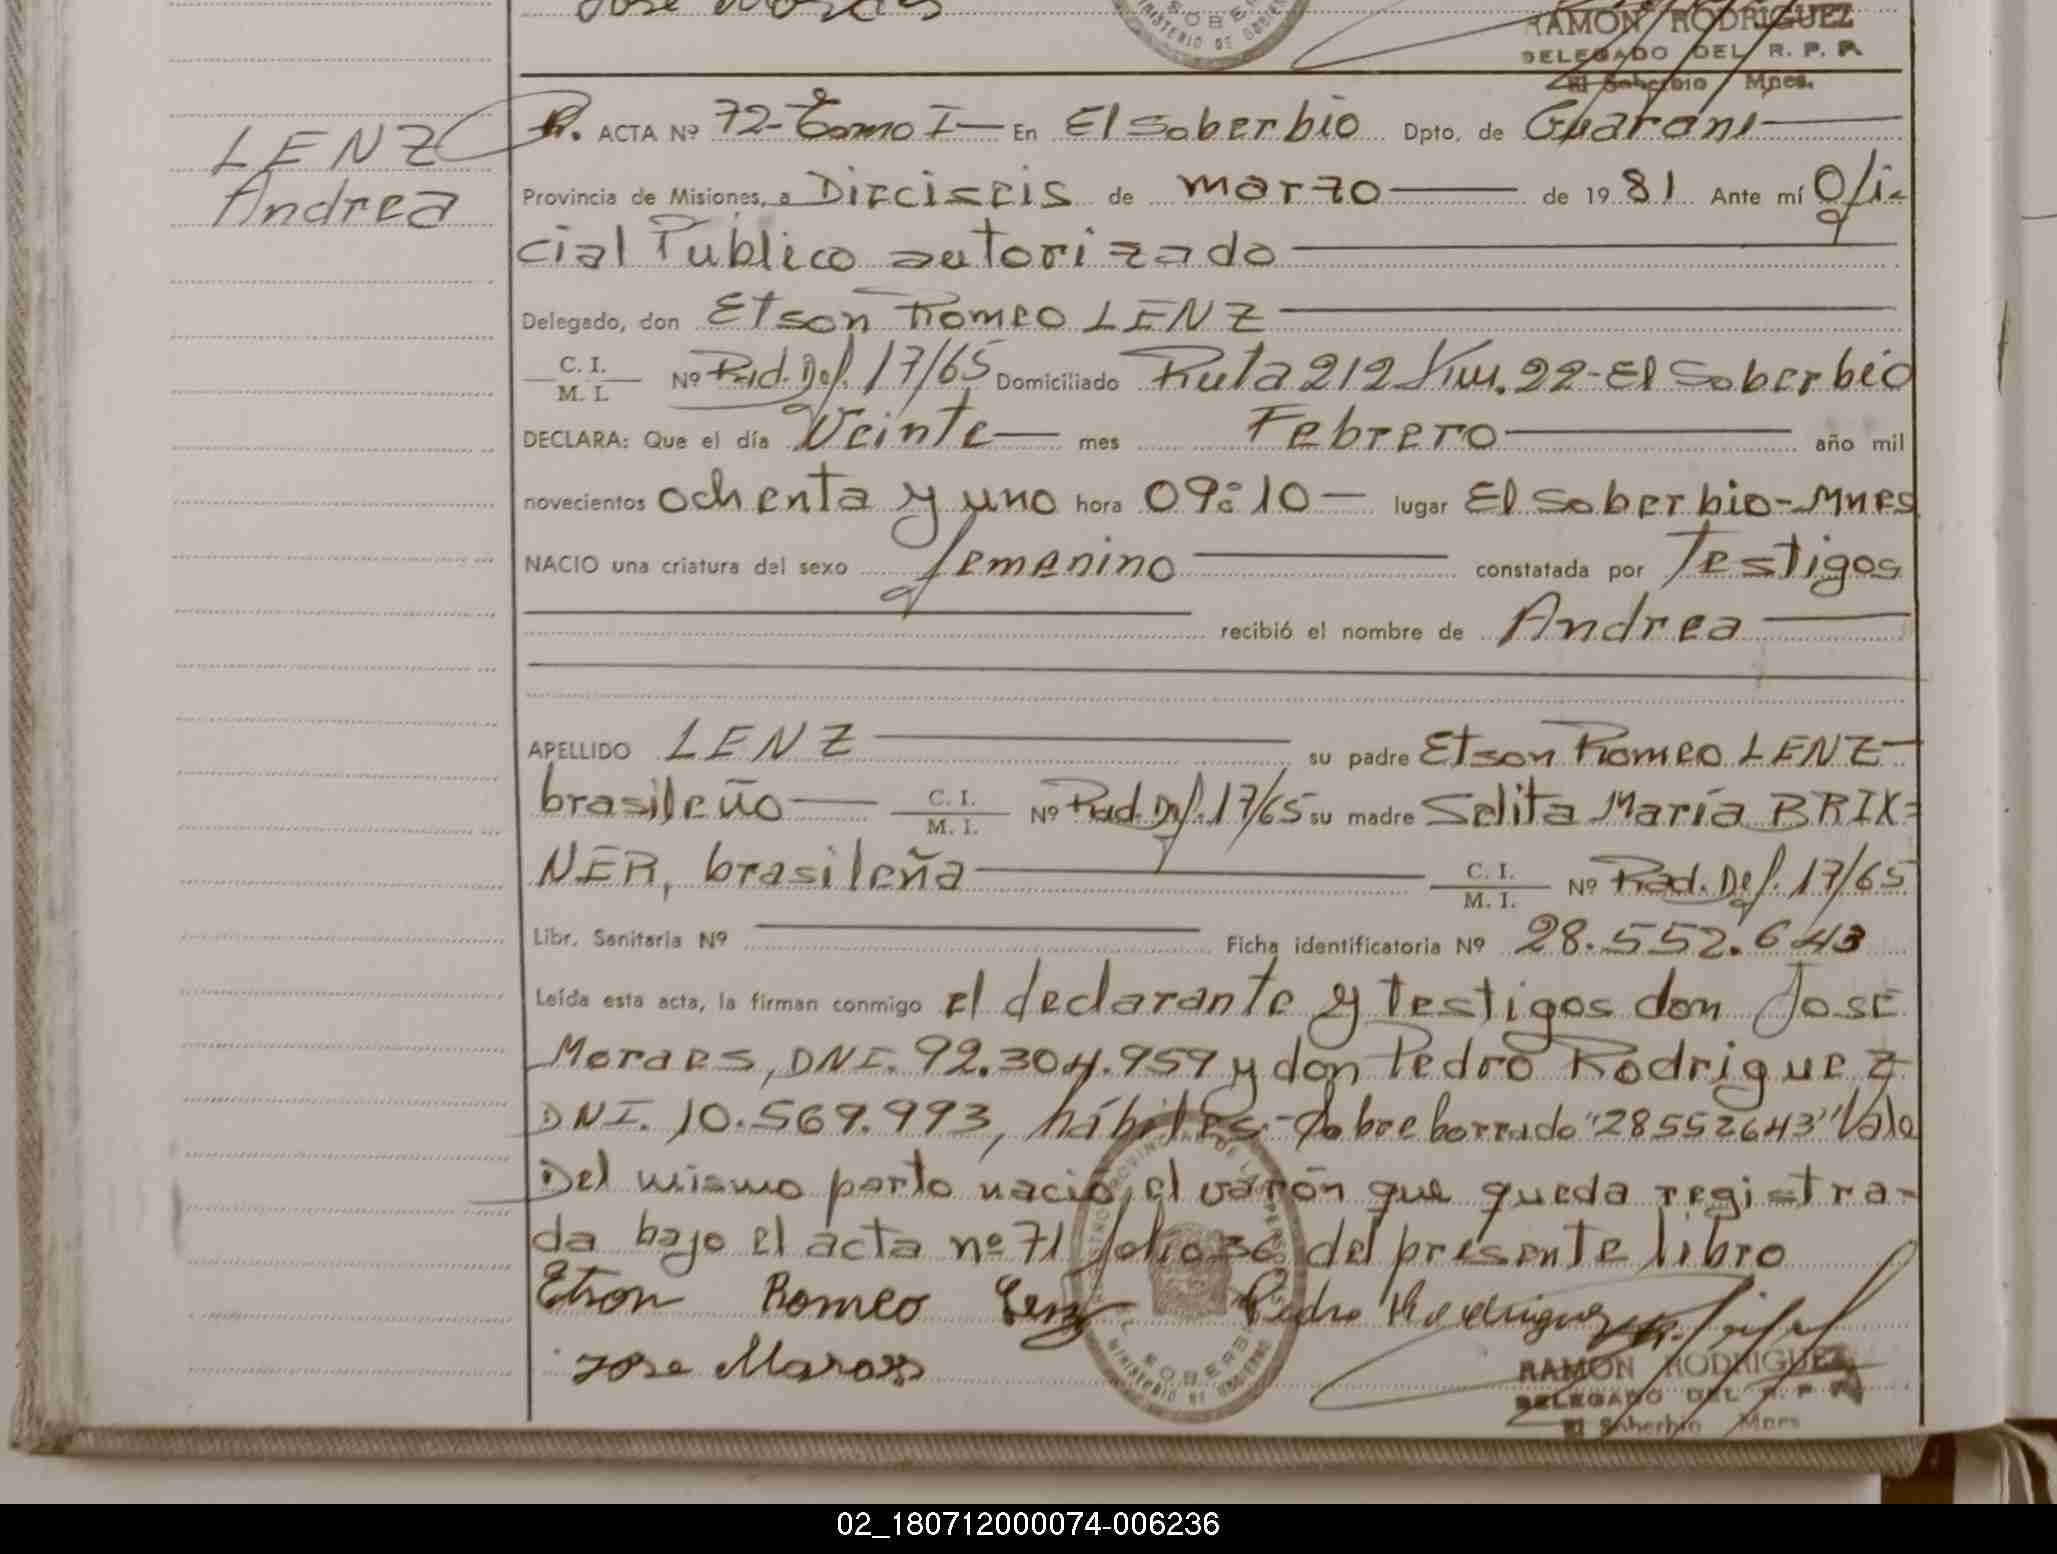 Jose Moraes
SOBER
MINISTERIO DE GOBIERNO
RAMON RODRIGUEZ
DELEGADO DEL R. P. P.
El Soberbio Mnes.
LENZ
Andrea
R. ACTA Nº 72-Tomo I— En El Soberbio Dpto. de Guarani
Provincia de Misiones, a Dieciseis de marzo de 1981 Ante mí Ofi-
cial Publico autorizado
Delegado, don Etson Romeo LENZ
C. I.
M. I. Nº Rad. Def. 17/65 Domiciliado Ruta 212 Km. 22-El Soberbio
DECLARA: Que el día Veinte— mes Febrero año mil
novecientos ochenta y uno hora 09:10 — lugar El Soberbio-Mnes
NACIO una criatura del sexo femenino constatada por Testigos
recibió el nombre de Andrea
APELLIDO LENZ su padre Etson Romeo LENZ
brasileño C. I. M. I. Nº Rad. Def. 17/65 su madre Selita María BRIX=
NER, brasileña C. I. M. I. Nº Rad. Def. 17/65
Libr. Sanitaria Nº Ficha identificatoria Nº 28.552.643
Leída esta acta, la firman conmigo el declarante y testigos don José
Moraes, DNI. 92.304.959 y don Pedro Rodriguez
DNI. 10.569.993, hábiles-Sobre borrado "28552643" Vale
Del mismo parto nacio, el varón que queda registra-
da bajo el acta nº 71 folio 36 del presente libro
Etson Romeo Lenz Pedro Rodriguez
Jose Moraes
SOBERBIO
MINISTERIO DE GOBIERNO
RAMON RODRIGUEZ
DELEGADO DEL R. P. P.
El Soberbio Mnes
02_180712000074-006236